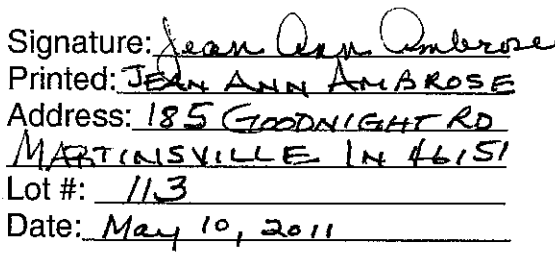 Signature: Jean Ann Ambrose
Printed: JEAN ANN AMBROSE
Address: 185 GOODNIGHT RD
MARTINSVILLE IN 46151
Lot #: 113
Date: May 10, 2011